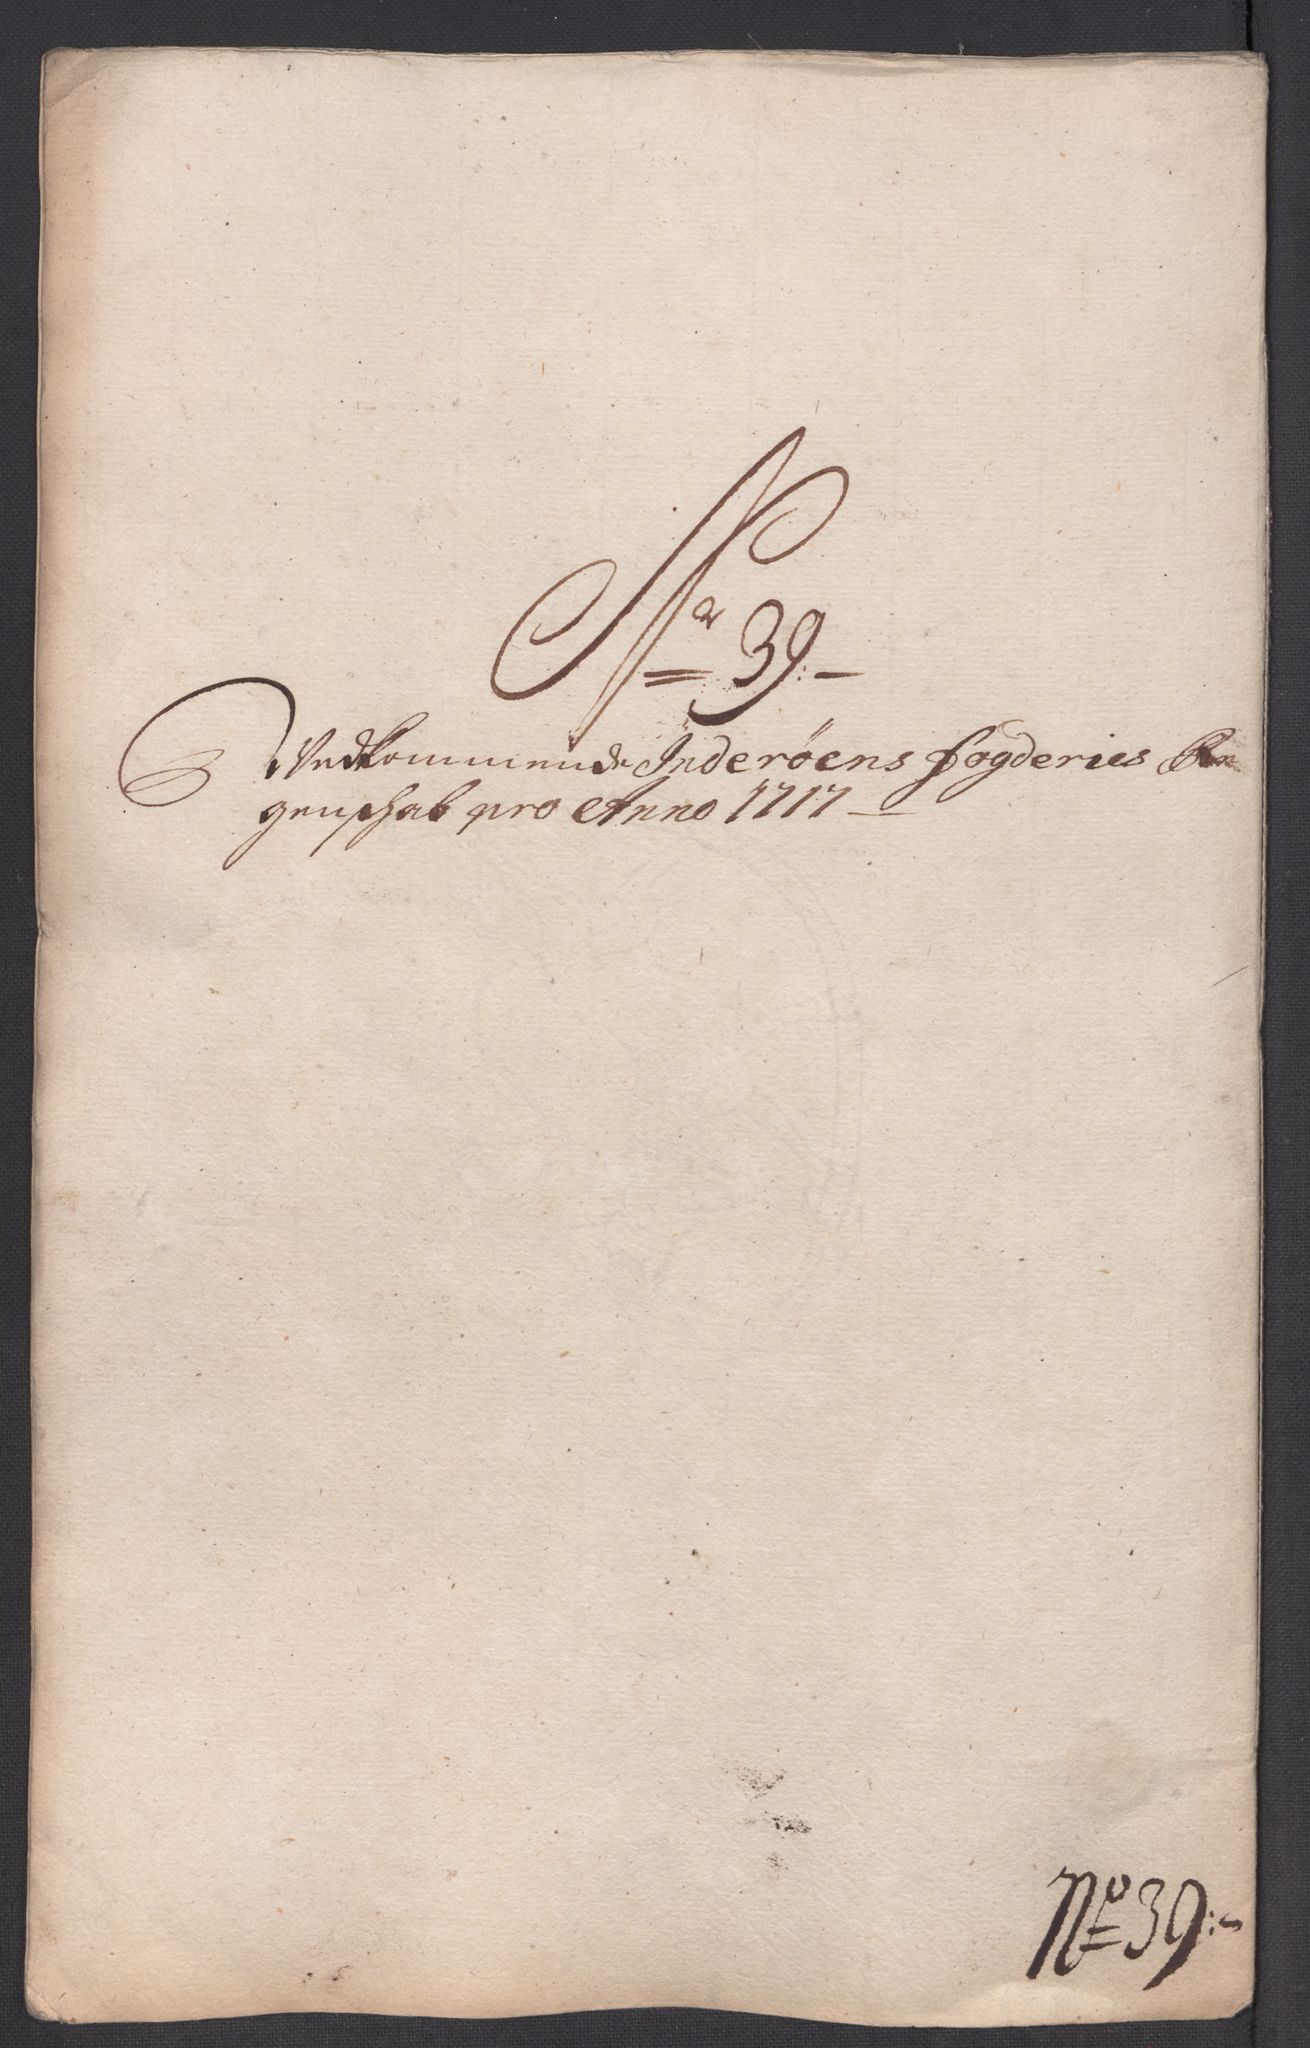 Nr 39:-
Vedkommende Inderöens fogderies Re
genschab pro Anno 1717 -
No 39:-